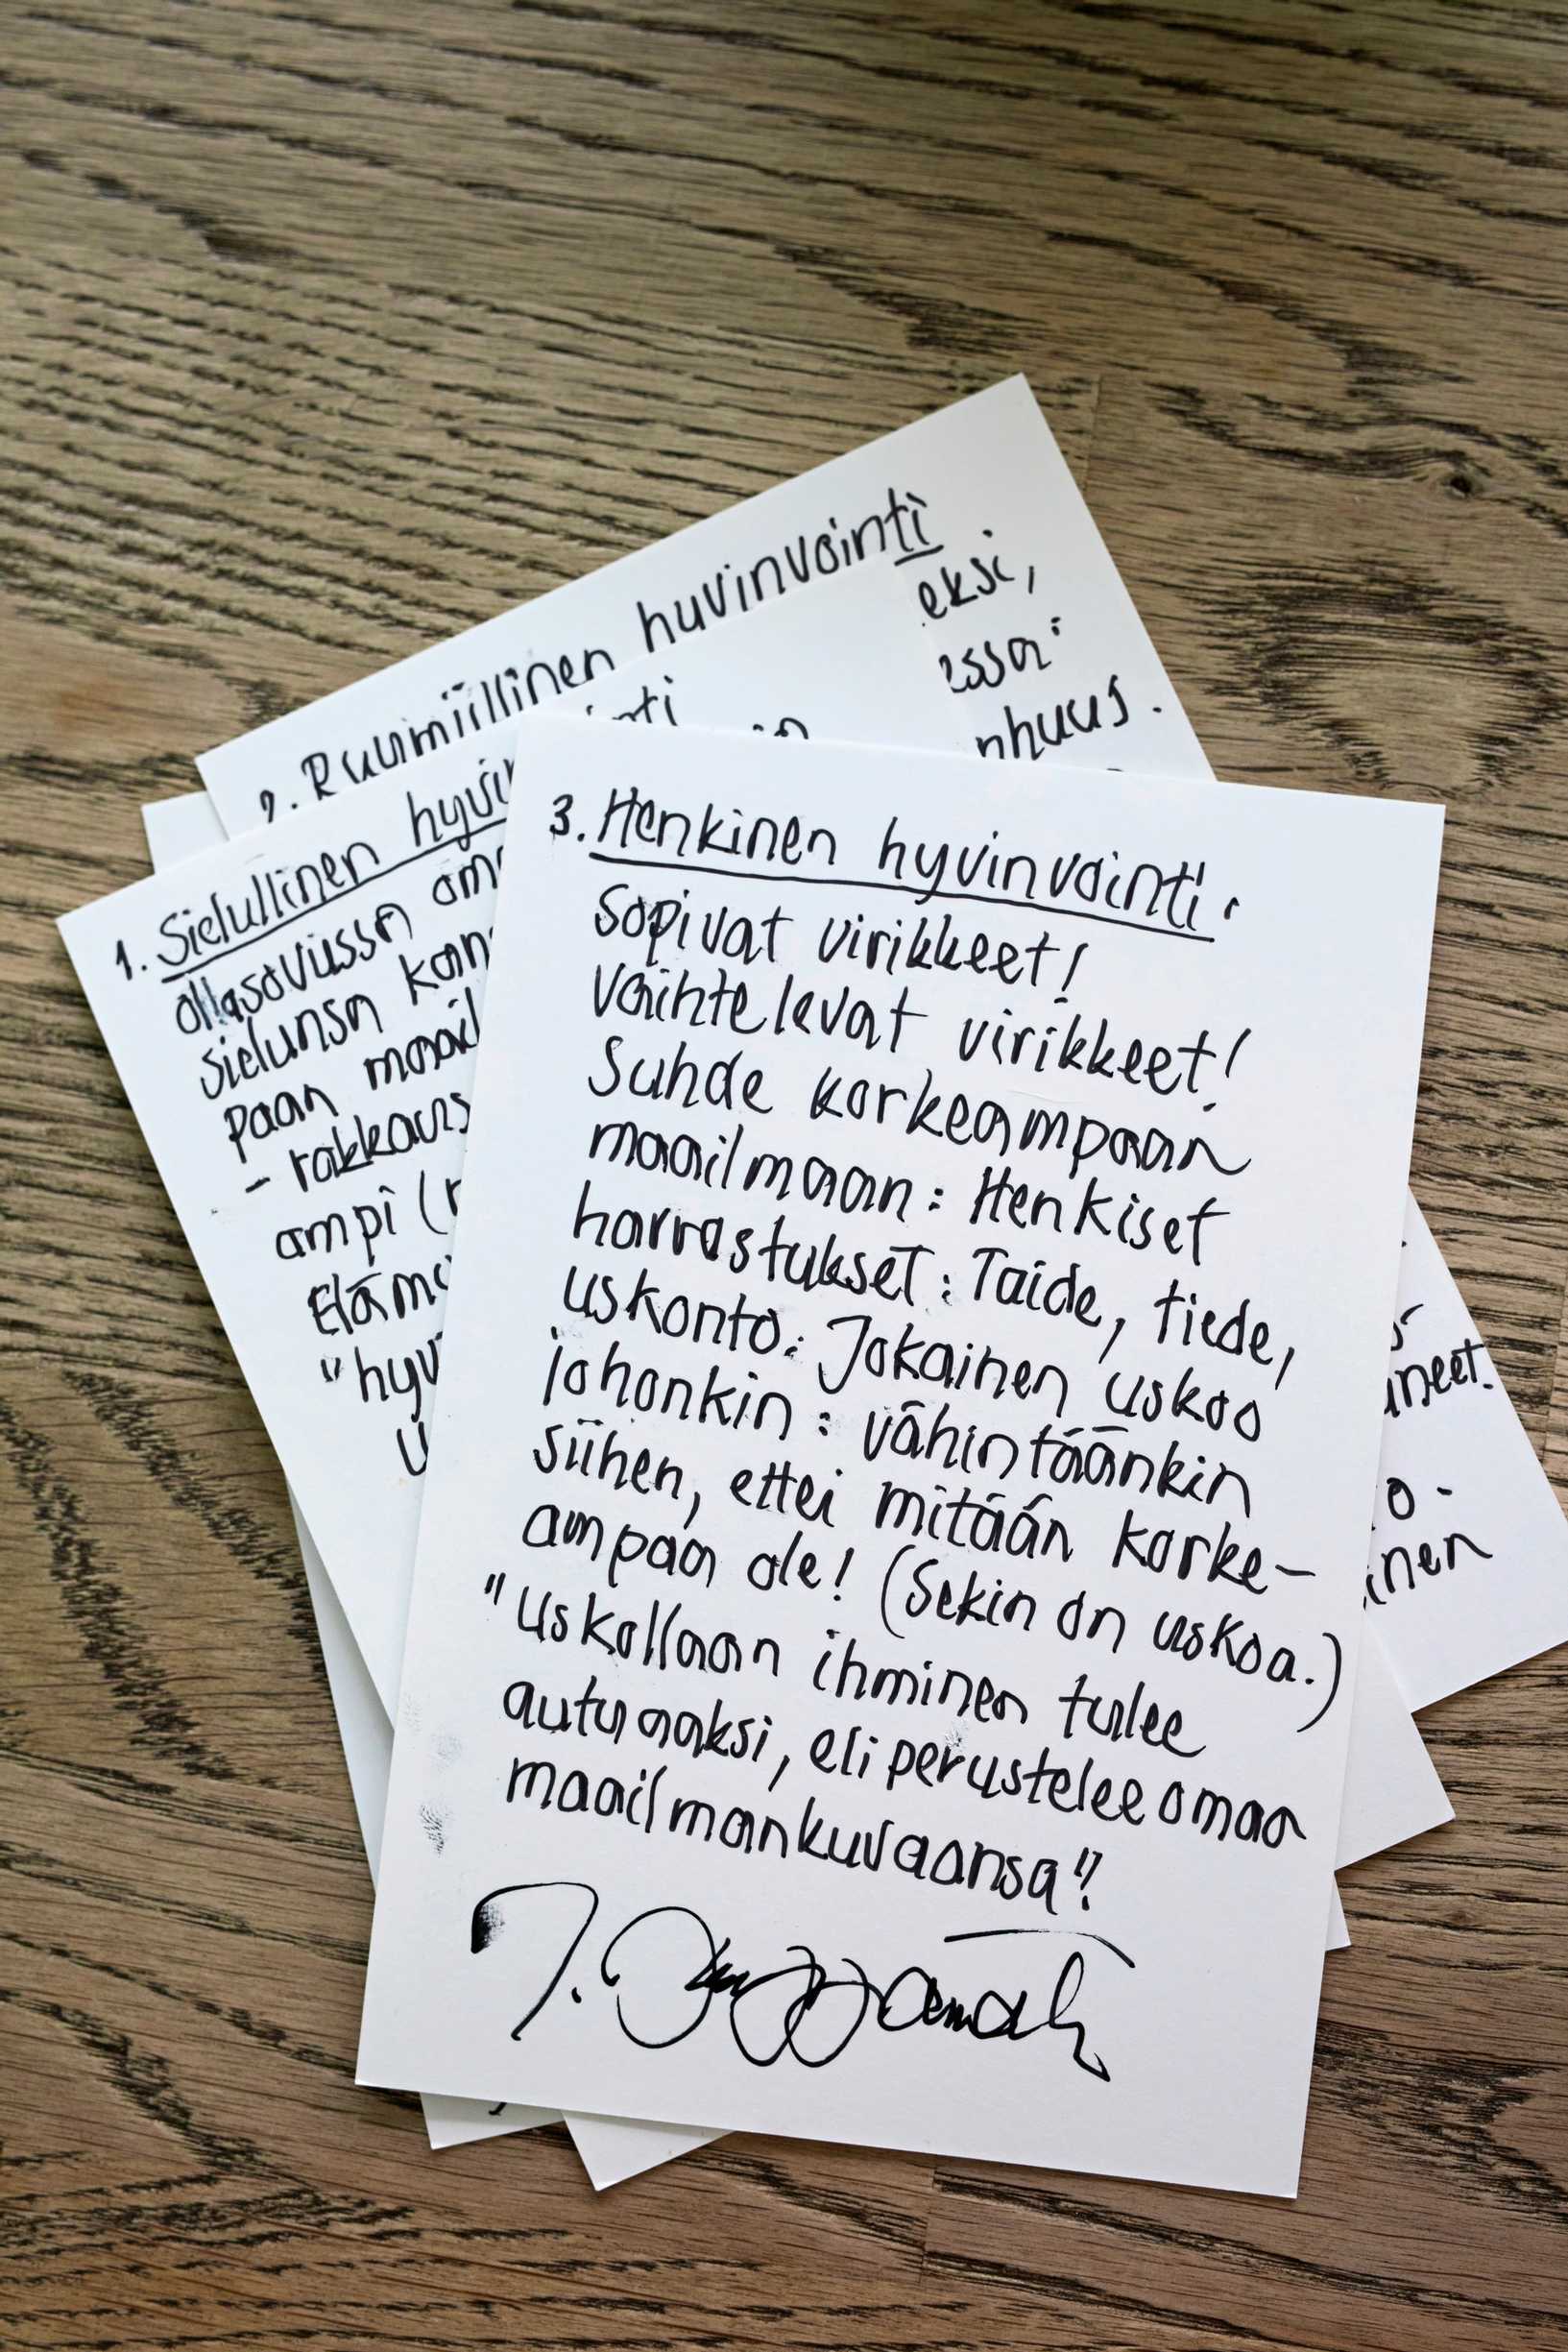 2. Ruumiillinen huvinvointi
eksi,
essa
nhuus.
1. Sielullinen hyvin
ollasovussa oma
sielunsa kans
paan maail
- rakkaus
ampi (
Eläm
"hyv
3. Henkinen hyvinvointi.
Sopivat virikkeet!
Vaihtelevat virikkeet!
Suhde korkeampaan
maailmaan: Henkiset
harrastukset: Taide, tiede,
uskonto: Jokainen uskoo
johonkin: vähintäänkin
siihen, ettei mitään korke-
ampaa ole! (Sekin on uskoa.)
"Uskollaan ihminen tulee
autuaaksi, eli perustelee omaa
maailmankuvaansa"!
uneet.
o-
inen